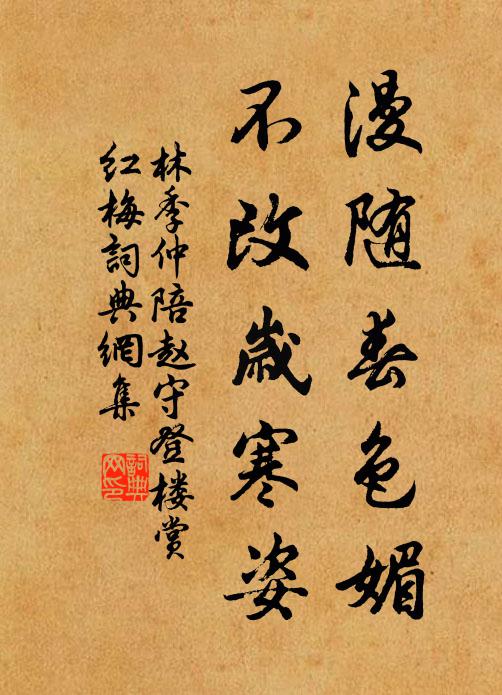 漫随春色媚
不改歲寒姿
林季仲陪赵守登楼赏
红梅詞典網集
詞典
网印